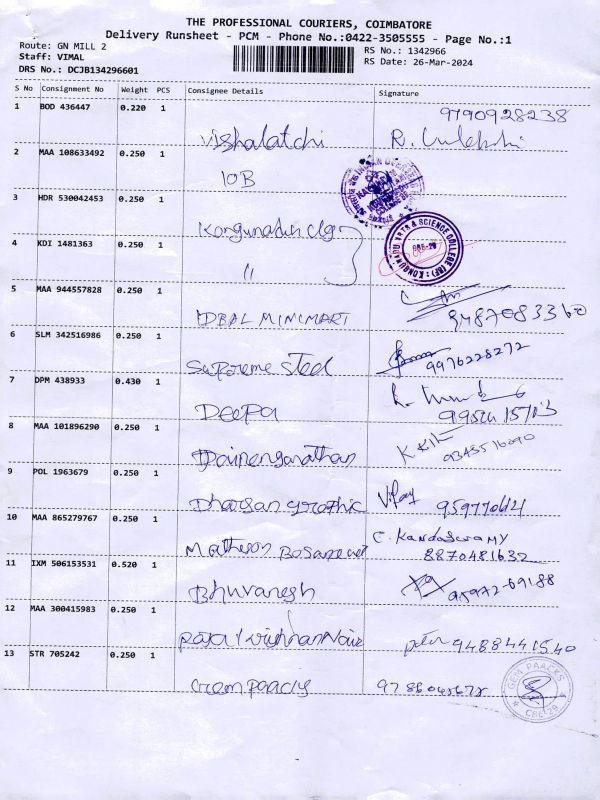 THE PROFESSIONAL COURIERS, COIMBATORE
Delivery Runsheet - PCM - Phone No.:0422-3505555 - Page No.:1
Route: GN MILL 2
RS No.: 1342966
Staff: VIMAL
RS Date: 26-Mar-2024
DRS No.: DCJB134296601
S No Consignment No Weight PCS Consignee Details Signature
1 BOD 436447 0.220 1
9790928238
Vishalatchi R.
2 MAA 108633492 0.250 1
IOB
3 HDR 530042453 0.250 1
Kongunadu clg
KONGUNADU ARTS & SCIENCE COLLEGE
4 KDI 1481363 0.250 1
"
5 MAA 944557828 0.250 1
IDEAL MINIMART 9487083360
6 SLM 342516986 0.250 1
Supreme Steel 9976228272
7 DPM 438933 0.430 1
Deepa
8 MAA 101896290 0.250 1
9 POL 1963679 0.250 1
Vijay
10 MAA 865279767 0.250 1
C. Kandaswamy
8870481632
11 IXM 506153531 0.520 1
Bhuvanesh 95972-69188
12 MAA 300415983 0.250 1
9488441540
13 STR 705242 0.250 1
Gem Paacks
GEM PAACKS
CBE-29